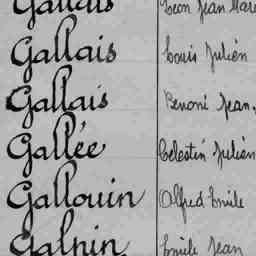 Gallais Léon Jean Marie
Gallais Louis Julien
Gallais Benoni Jean
Gallée Célestin Julien
Gallouin Alfred Emile
Galpin Emile Jean